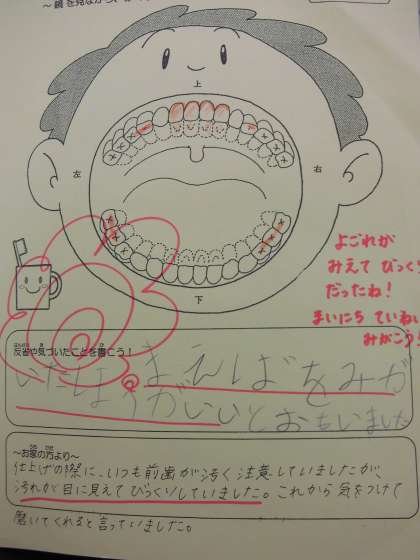 ～鏡を見ながら、
上
左
右
下
よごれが
みえて びっくり
だったね！
まいにち ていねいに
みがこう！
反省や気づいたことを書こう！
まえばをみが
いたほうがいいとおもいました
～お家の方より～
仕上げの際に、いつも前歯が汚く注意していましたが、
汚れが目に見えてびっくりしていました。これから気をつけて
磨いてくれると言っていました。